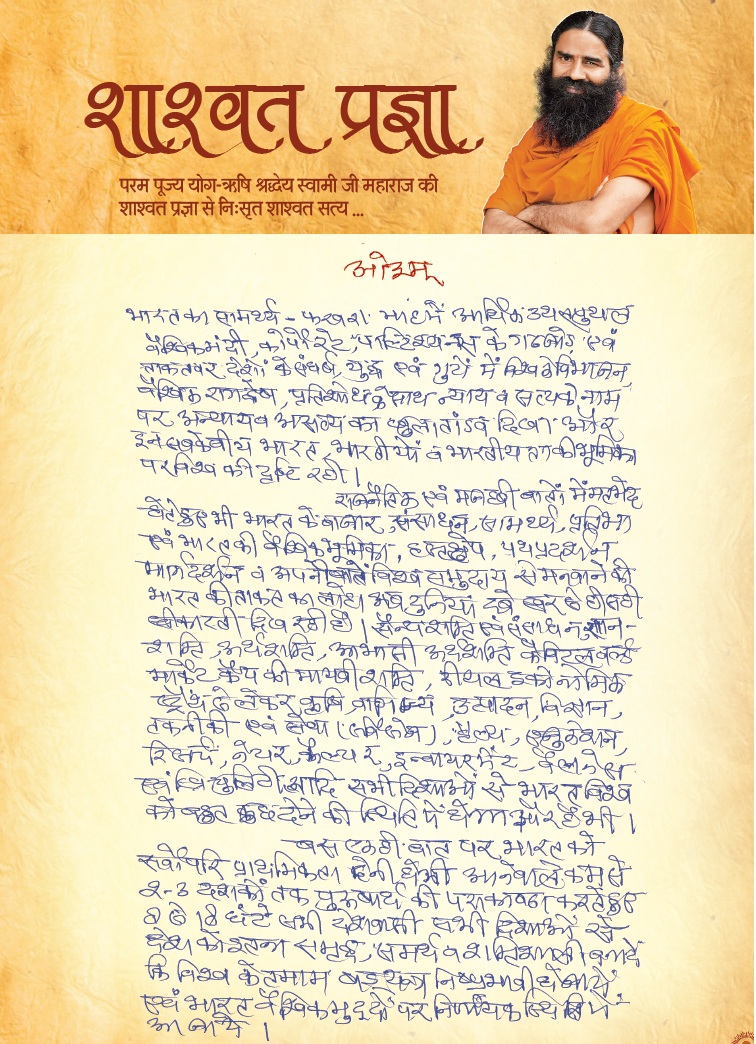 शाश्वत प्रज्ञा
परम पूज्य योग-ऋषि श्रद्धेय स्वामी जी महाराज की
शाश्वत प्रज्ञा से निःसृत शाश्वत सत्य ...
ओ३म्
भारत का सामर्थ्य - फरवरी माह में आर्थिक उथलपुथल
वैश्विक मंदी, कोर्पोरेट, पॉल्टिशियन्स के गठजोड़ एवं
ताकतवर देशों के संघर्ष, युद्ध एवं गुटों में विश्व के विभाजन,
वैश्विक रागद्वेष, प्रतिशोध के साथ न्याय व सत्य के नाम
पर अन्याय व असत्य का खुला तांडव दिखा और
इन सबके बीच भारत, भारतीयों व भारतीयता की भूमिका
पर विश्व की दृष्टि रही।
राजनैतिक एवं मजहबी बातों में मतभेद
होते हुए भी भारत के बाजार, संसाधन, सामर्थ्य, प्रतिभा
एवं भारत की वैश्विक भूमिका, हस्तक्षेप, पथप्रदर्शन,
मार्गदर्शन व अपनी बातें विश्व समुदाय से मनवाने की
भारत की ताकत का लोहा अब दुनियां दबे स्वर से ही सही
स्वीकारती दिख रही है। सैन्यशक्ति एवं संसाधन, ज्ञान-
शक्ति, अर्थशक्ति, आभासी अर्थशक्ति कैपिटल वर्ल्ड
मार्केट कैप की मायावी शक्ति, रीयल इकोनॉमिक
स्ट्रैंथ से लेकर कृषि, वाणिज्य, उत्पादन, विज्ञान,
तकनीकी एवं सेवा (सर्विसेस), हैल्थ, एजुकेशन,
रिसर्च, नेचर, कल्चर, इन्वायरमेंट, वैलनेस
एवं स्प्रिचुलिटी आदि सभी दिशाओं से भारत विश्व
को बहुत कुछ देने की स्थिति में होगा और है भी।
बस एक ही बात पर भारत को
सर्वोपरि प्राथमिकता देनी होगी आनेवाले कम से
2-3 दशकों तक पुरुषार्थ की पराकाष्ठा करते हुए
8 से 18 घंटे सभी देशवासी सभी दिशाओं से
देश को इतना समृद्ध, समर्थ व शक्तिशाली बना दें
कि विश्व के तमाम षड्यन्त्र निष्प्रभावी हो जायें
एवं भारत वैश्विक मुद्दों पर निर्णायक स्थिति में
आ जाये।